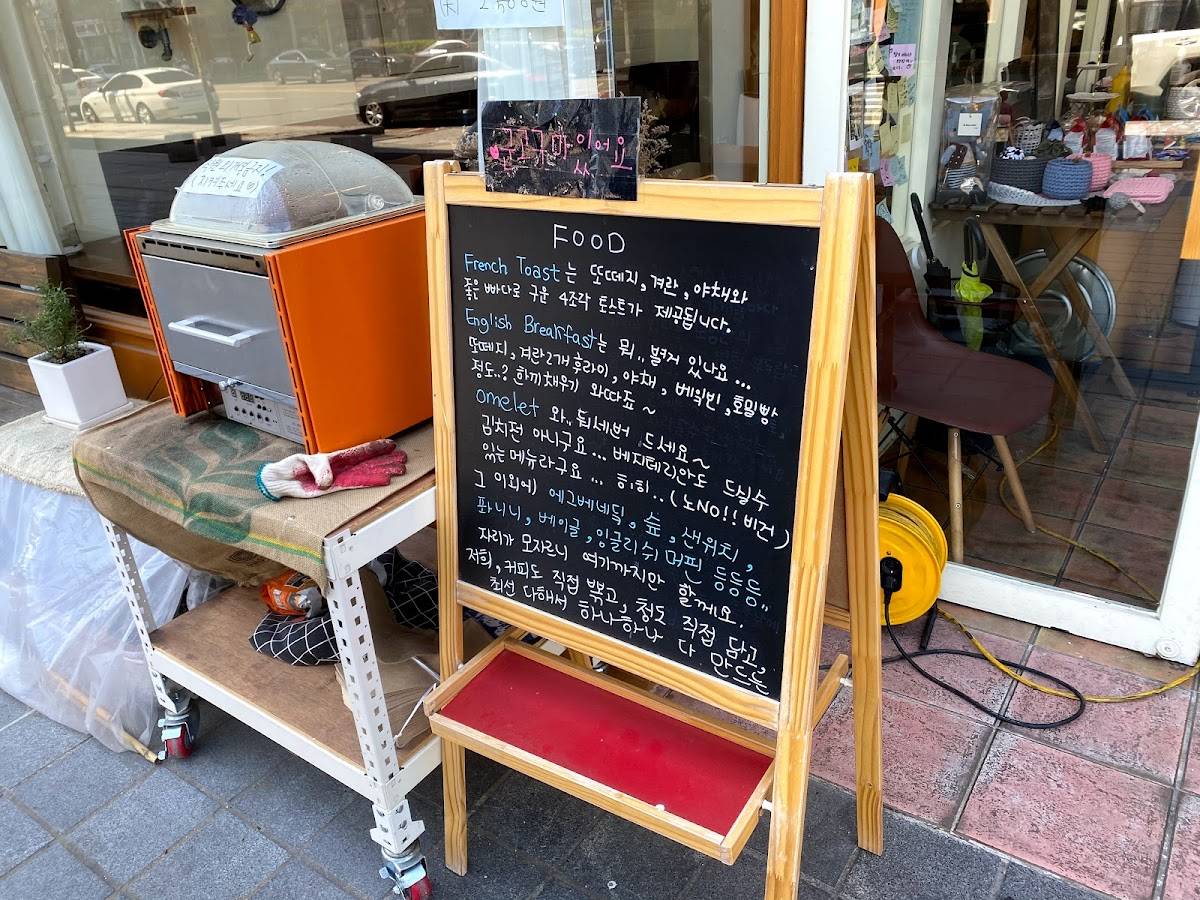 군고구마있어요
FOOD
French Toast는 또떼지, 겨란, 야채와
좋은 빠다로 구운 4조각 토스트가 제공됩니다.
English Breakfast는 뭐.. 별거 있나요...
또떼지, 겨란2개후라이, 야채, 베익빈, 호밀빵
정도..? 한끼채우기 와따죠~
omelet 와.. 둡세번 드세요~
김치전 아니구요... 베지테리안도 드실수
있는메뉴라구요... 히히..(노NO!! 비건)
그 이외에) 에그베네딕, 숲, 샌위치,
파니니, 베이글, 잉글리쉬머핀 등등등..
자리가 모자르니 여기까지만 할께요.
저희, 커피도 직접 뽂고, 청도 직접 담고,
최선 다해서 하나하나 다 만드는